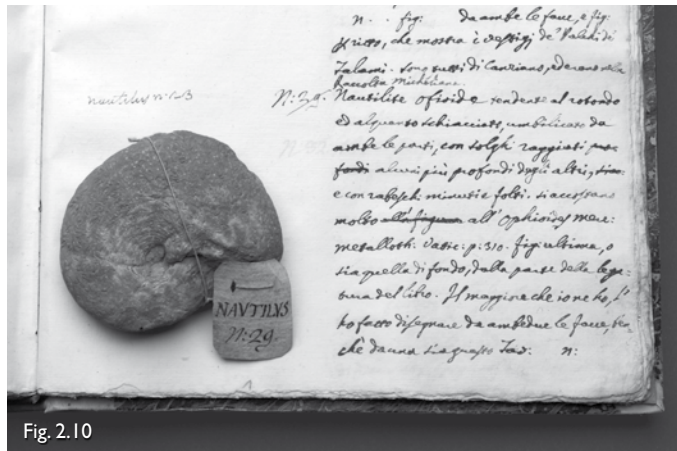 n. . fig: da ambe le facce, e fig:
che mostra i vestigj de'
Talami. sono tutti di Canziano, ed erano nella
Raccolta
nautilus n: 1-3
N: 29. Nautilite ofioide tendente al rotondo
ed alquanto schiacciato, umbilicato da
ambe le parti, con solghi raggiati
fondi alcuni più profondi degli altri,
e con rabeschi minuti e folti. si accostano
molto alla figura all' Ophioides mere:
metalloth: Vatic: p: 310. fig: ultima, o
sia quella di fondo, dalla parte della lega:
tura del libro. Il maggiore che io ne ho, l'
ho fatto disegnare da ambedue le facce,
chè da una sia questo Tav: n:
NAUTILUS
N: 29.
Fig. 2.10